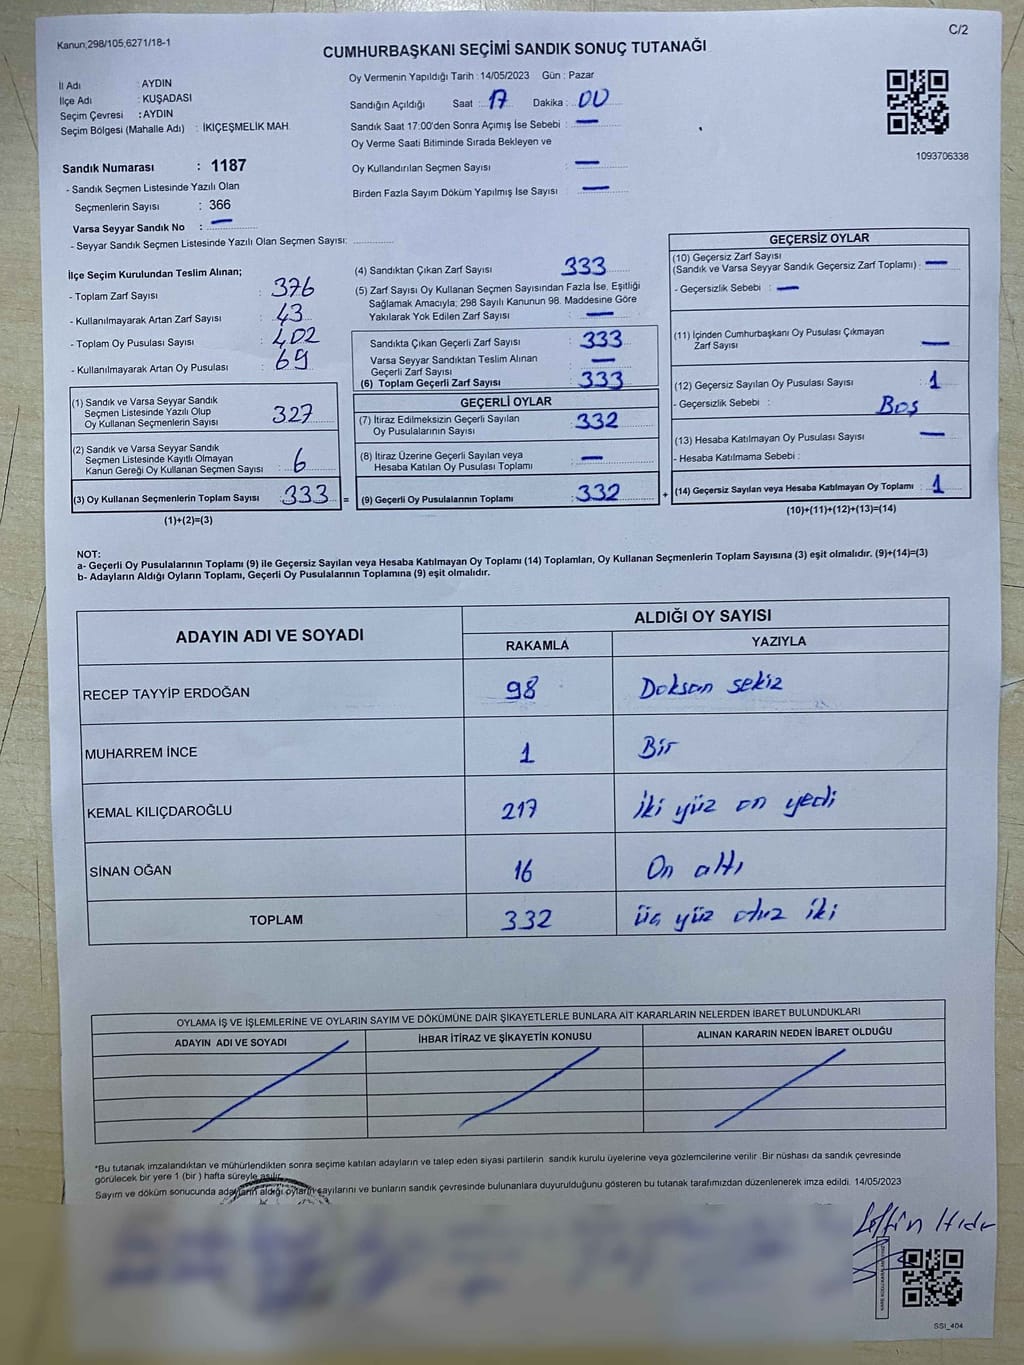 Kanun,298/105,6271/18-1
C/2
CUMHURBAŞKANI SEÇİMİ SANDIK SONUÇ TUTANAĞI
İl Adı : AYDIN
İlçe Adı : KUŞADASI
Seçim Çevresi : AYDIN
Seçim Bölgesi (Mahalle Adı) : İKİÇEŞMELİK MAH.
Sandık Numarası : 1187
- Sandık Seçmen Listesinde Yazılı Olan
Seçmenlerin Sayısı : 366
Varsa Seyyar Sandık No : —
- Seyyar Sandık Seçmen Listesinde Yazılı Olan Seçmen Sayısı: ..............
Oy Vermenin Yapıldığı Tarih : 14/05/2023 Gün : Pazar
Sandığın Açıldığı Saat : 17 Dakika : 00
Sandık Saat 17:00'den Sonra Açımış İse Sebebi : —
Oy Verme Saati Bitiminde Sırada Bekleyen ve
Oy Kullandırılan Seçmen Sayısı : —
Birden Fazla Sayım Döküm Yapılmış İse Sayısı : —
1093706338
İlçe Seçim Kurulundan Teslim Alınan;
- Toplam Zarf Sayısı : 376
- Kullanılmayarak Artan Zarf Sayısı : 43
- Toplam Oy Pusulası Sayısı : 402
- Kullanılmayarak Artan Oy Pusulası : 69
(1) Sandık ve Varsa Seyyar Sandık
Seçmen Listesinde Yazılı Olup
Oy Kullanan Seçmenlerin Sayısı : 327
(2) Sandık ve Varsa Seyyar Sandık
Seçmen Listesinde Kayıtlı Olmayan
Kanun Gereği Oy Kullanan Seçmen Sayısı : 6
(3) Oy Kullanan Seçmenlerin Toplam Sayısı : 333 =
(1)+(2)=(3)
(4) Sandıktan Çıkan Zarf Sayısı 333
(5) Zarf Sayısı Oy Kullanan Seçmen Sayısından Fazla İse, Eşitliği
Sağlamak Amacıyla; 298 Sayılı Kanunun 98. Maddesine Göre
Yakılarak Yok Edilen Zarf Sayısı : —
Sandıkta Çıkan Geçerli Zarf Sayısı : 333
Varsa Seyyar Sandıktan Teslim Alınan
Geçerli Zarf Sayısı : —
(6) Toplam Geçerli Zarf Sayısı : 333
GEÇERLİ OYLAR
(7) İtiraz Edilmeksizin Geçerli Sayılan
Oy Pusulalarının Sayısı : 332
(8) İtiraz Üzerine Geçerli Sayılan veya
Hesaba Katılan Oy Pusulası Toplamı : —
(9) Geçerli Oy Pusulalarının Toplamı : 332 +
GEÇERSİZ OYLAR
(10) Geçersiz Zarf Sayısı
(Sandık ve Varsa Seyyar Sandık Geçersiz Zarf Toplamı) : —
- Geçersizlik Sebebi : —
(11) İçinden Cumhurbaşkanı Oy Pusulası Çıkmayan
Zarf Sayısı —
(12) Geçersiz Sayılan Oy Pusulası Sayısı : 1
- Geçersizlik Sebebi : Boş
(13) Hesaba Katılmayan Oy Pusulası Sayısı : —
- Hesaba Katılmama Sebebi :
(14) Geçersiz Sayılan veya Hesaba Katılmayan Oy Toplamı : 1
(10)+(11)+(12)+(13)=(14)
NOT:
a- Geçerli Oy Pusulalarının Toplamı (9) ile Geçersiz Sayılan veya Hesaba Katılmayan Oy Toplamı (14) Toplamları, Oy Kullanan Seçmenlerin Toplam Sayısına (3) eşit olmalıdır. (9)+(14)=(3)
b- Adayların Aldığı Oyların Toplamı, Geçerli Oy Pusulalarının Toplamına (9) eşit olmalıdır.
ADAYIN ADI VE SOYADI
ALDIĞI OY SAYISI
RAKAMLA YAZIYLA
RECEP TAYYİP ERDOĞAN 98 Doksan sekiz
MUHARREM İNCE 1 Bir
KEMAL KILIÇDAROĞLU 217 İki yüz on yedi
SİNAN OĞAN 16 On altı
TOPLAM 332 üç yüz otuz iki
OYLAMA İŞ VE İŞLEMLERİNE VE OYLARIN SAYIM VE DÖKÜMÜNE DAİR ŞİKAYETLERLE BUNLARA AİT KARARLARIN NELERDEN İBARET BULUNDUKLARI
ADAYIN ADI VE SOYADI İHBAR İTİRAZ VE ŞİKAYETİN KONUSU ALINAN KARARIN NEDEN İBARET OLDUĞU
*Bu tutanak imzalandıktan ve mühürlendikten sonra seçime katılan adayların ve talep eden siyasi partilerin sandık kurulu üyelerine veya gözlemcilerine verilir .Bir nüshası da sandık çevresinde
görülecek bir yere 1 (bir ) hafta süreyle asılır.
Sayım ve döküm sonucunda adayların aldığı oyların sayılarını ve bunların sandık çevresinde bulunanlara duyurulduğunu gösteren bu tutanak tarafımızdan düzenlenerek imza edildi. 14/05/2023
SSI_404